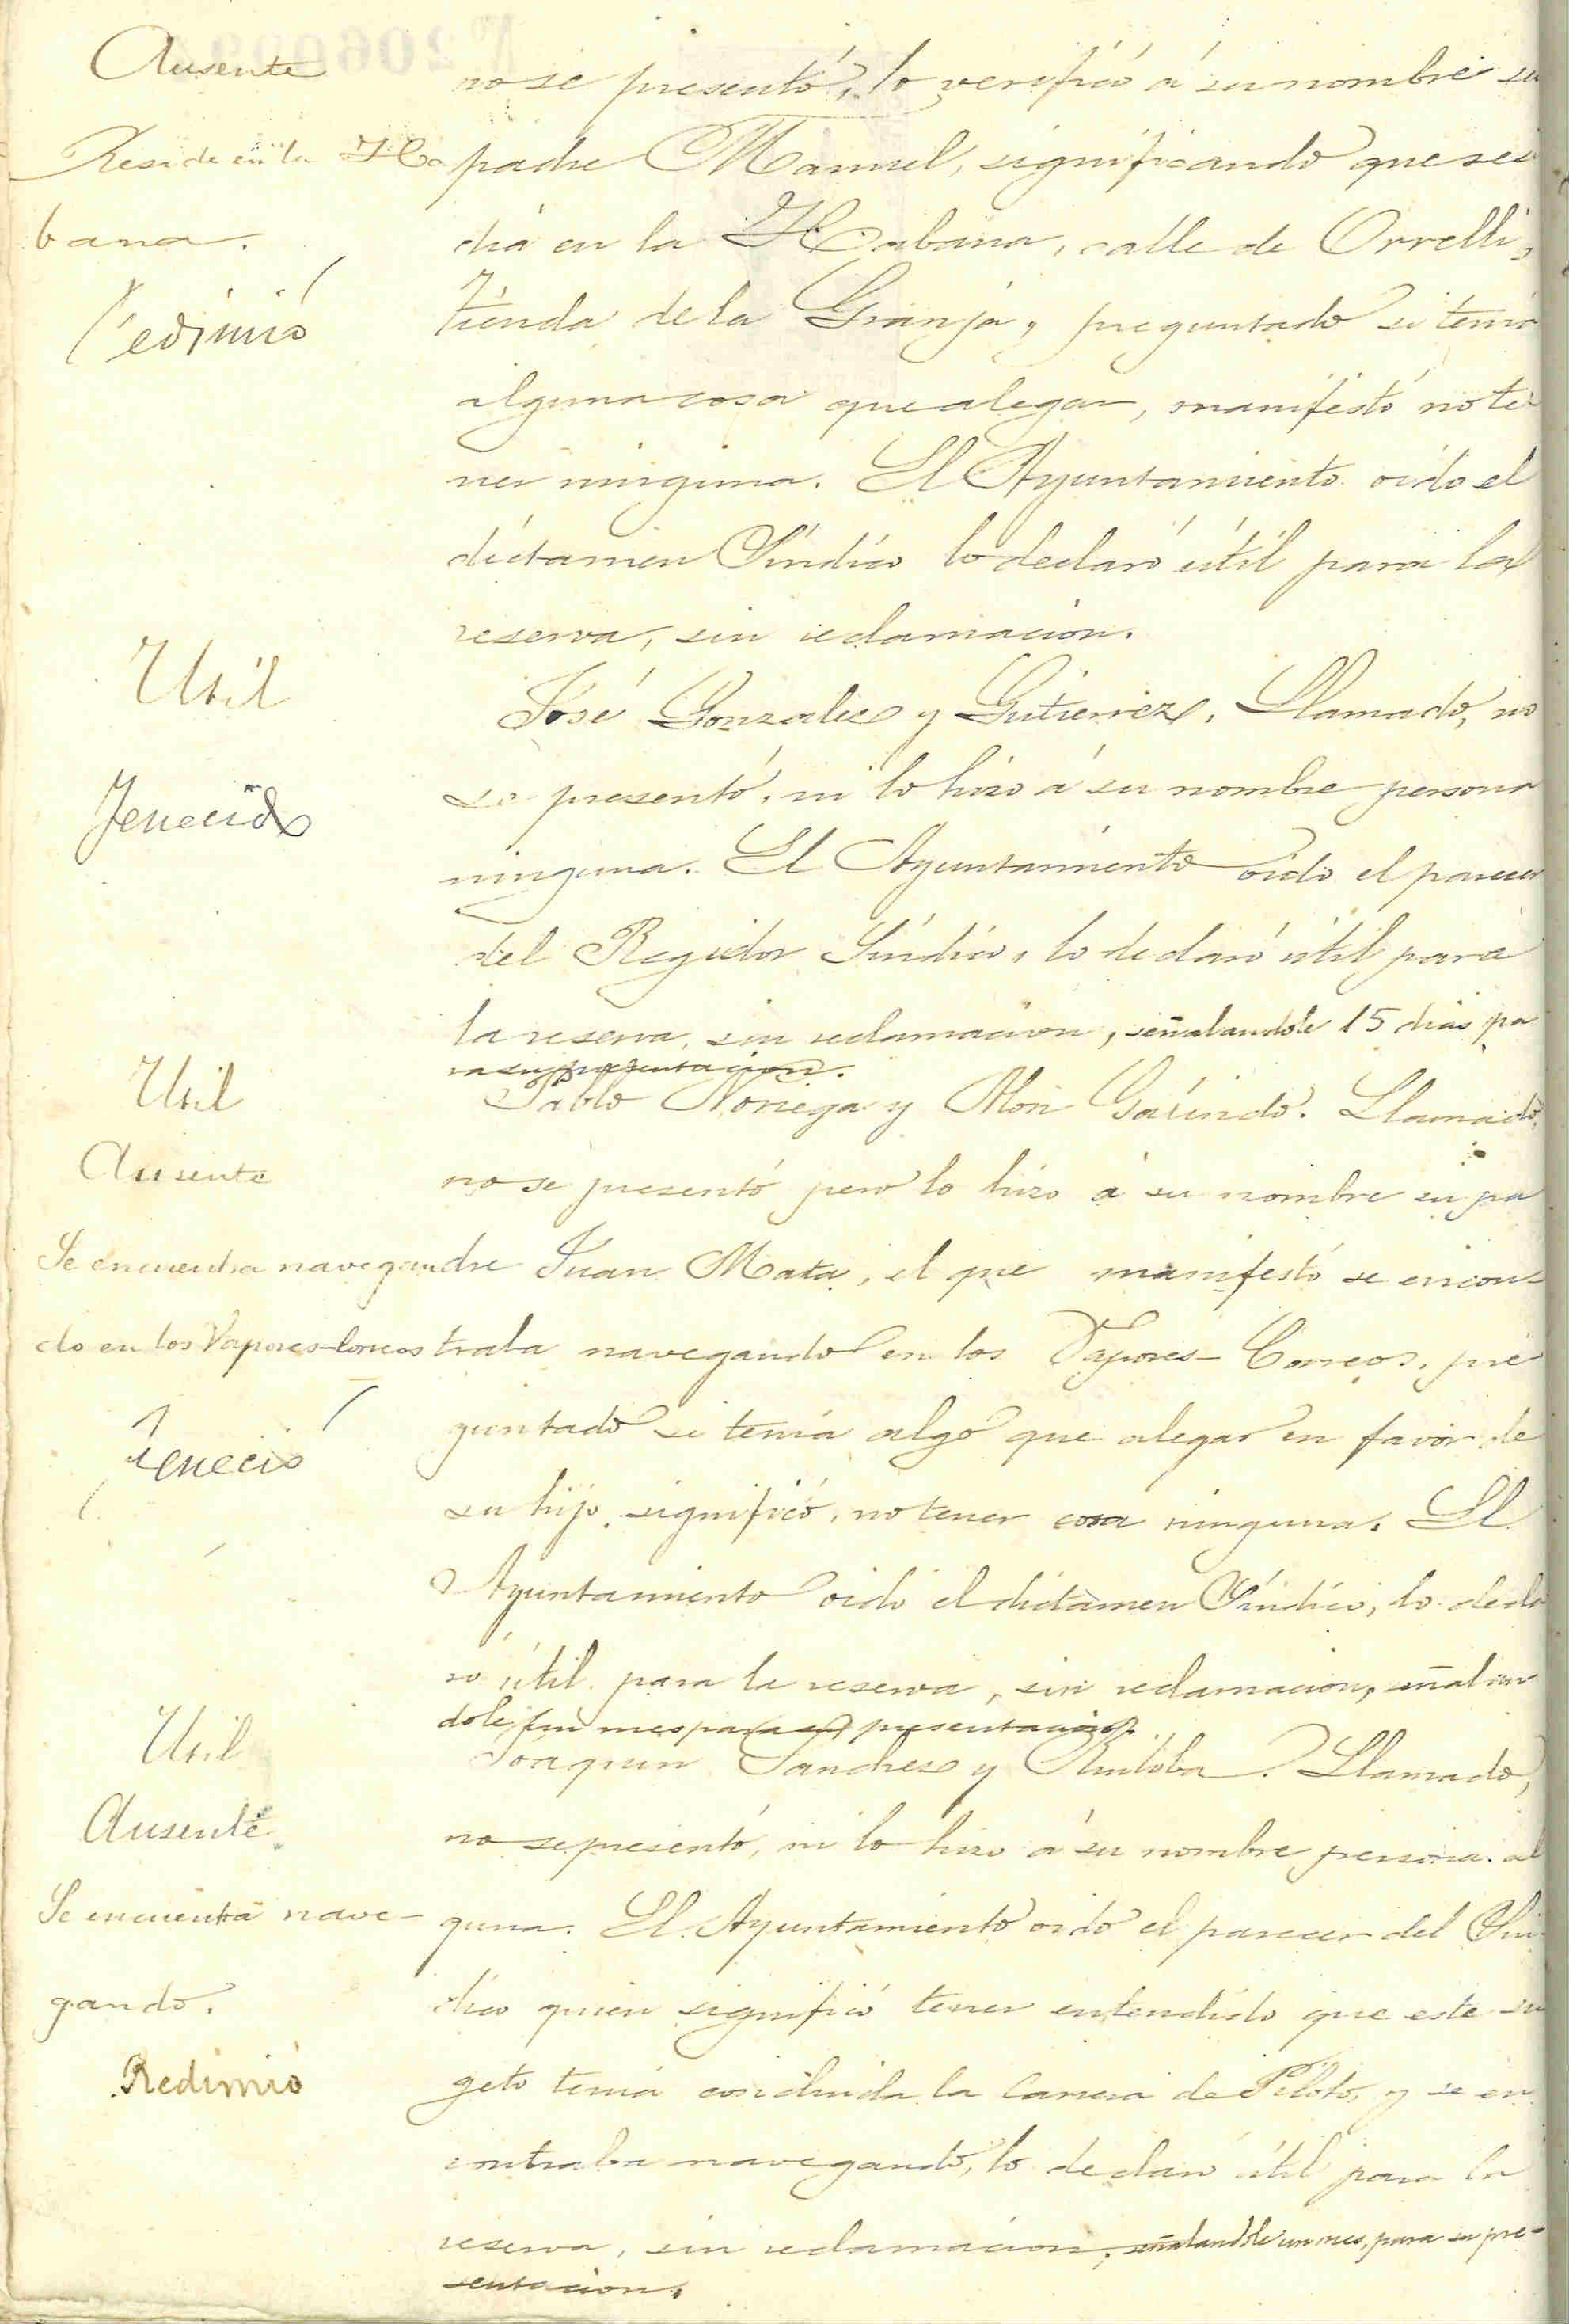 Ausente
no se presentó, lo verificó á su nombre su
Reside en la Ha
padre Manuel, significando que resi
bana.
dia en la Habana, calle de Orrelli,
Redimió
tienda de la Granja, preguntado si tenia
alguna cosa que alegar, manifestó no te
ner ninguna. El Ayuntamiento oido el
dictamen Síndico lo declaró útil para la
reserva, sin reclamacion.
Util
José Gonzalez y Gutierrez. Llamado, no
Fenecido
se presentó, ni lo hizo á su nombre persona
ninguna. El Ayuntamiento oido el parecer
del Regidor Síndico, lo declaró útil para
la reserva, sin reclamacion, señalandole 15 dias pa
ra su presentacion.
Util
Pablo Noriega y Mon Garindo. Llamado,
Ausente
no se presentó pero lo hizo á su nombre su pa
Se encuentra navegan
dre Juan Mata, el que manifestó se encon-
do en los Vapores-Correos
traba navegando en los Vapores-Correos, pre
Feneció
guntado si tenia algo que alegar en favor de
su hijo, significó, no tener cosa ninguna. El
Ayuntamiento oido el dictamen Síndico, lo decla
ró útil para la reserva, sin reclamacion, señalan
dole un mes para su presentacion.
Util
Joaquin Sanchez y Ruiloba. Llamado,
Ausente
no se presentó, ni lo hizo á su nombre persona al
Se encuentra nave-
guna. El Ayuntamiento oido el parecer del Sín
gando.
dico quien significó tener entendido que este su
Redimió
geto tenia concluida la Carrera de Piloto, y se en
contraba navegando, lo declaró útil para la
reserva, sin reclamacion, señalandole un mes, para su pre-
sentacion.